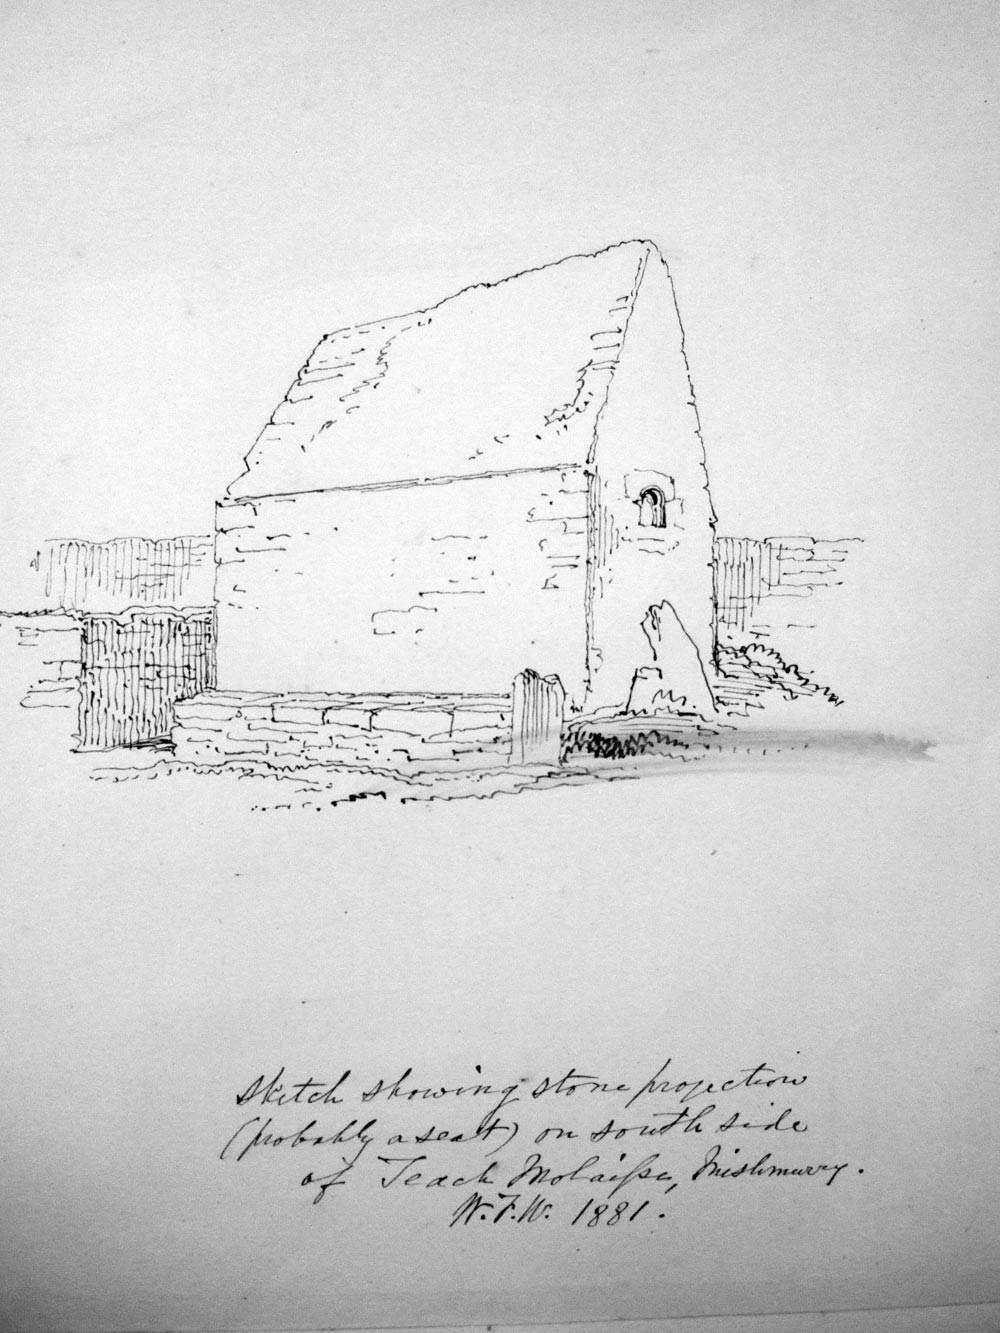 Sketch showing stone projection
(probably a seat) on south side
of Teach Molaisse, Inishmurry.
W.F.W. 1881.